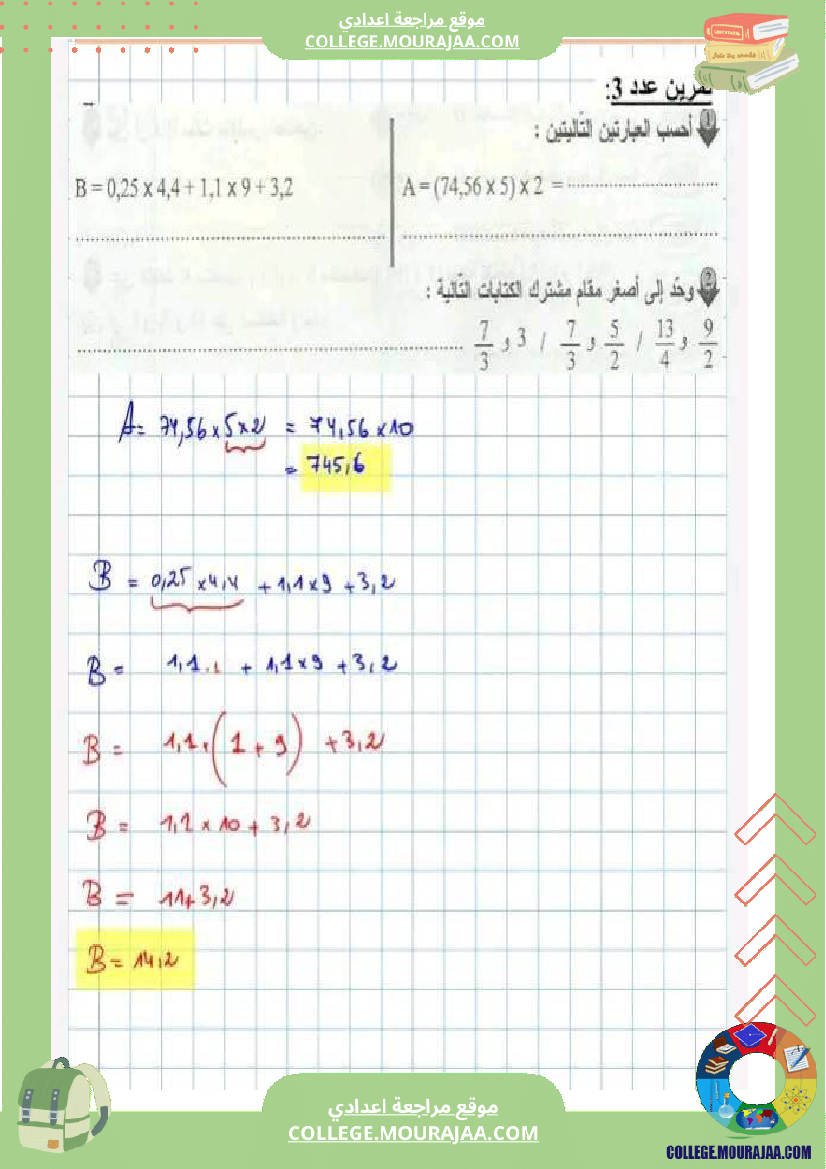 موقع مراجعة اعدادي
COLLEGE.MOURAJAA.COM
تمرين عدد 3:
1 أحسب العبارتين التّاليتين :
A = (74,56 x 5) x 2 = ..............................
B = 0,25 x 4,4 + 1,1 x 9 + 3,2
2 وحّد إلى أصغر مقام مشترك الكتابات التّالية :
9/2 و 13/4 / 5/2 و 7/3 / 3 و 7/3 ..............................
A = 74,56 x 5 x 2 = 74,56 x 10
= 745,6
B = 0,25 x 4,4 + 1,1 x 9 + 3,2
B = 1,1 . 1 + 1,1 x 9 + 3,2
B = 1,1 . (1 + 9) + 3,2
B = 1,1 x 10 + 3,2
B = 11 + 3,2
B = 14,2
موقع مراجعة اعدادي
COLLEGE.MOURAJAA.COM
COLLEGE.MOURAJAA.COM